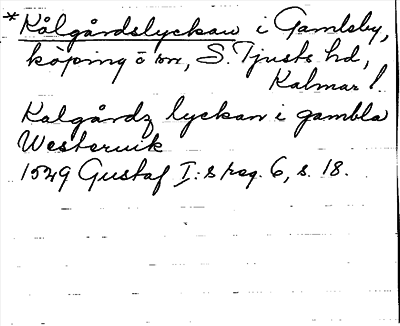 *Kålgårdslyckan i Gamleby,
köping o sn, S. Tjusts hd,
Kalmar l.
Kalgårdz lyckan i gambla
Westeruik
1529 Gustaf I:s reg. 6, s. 18.